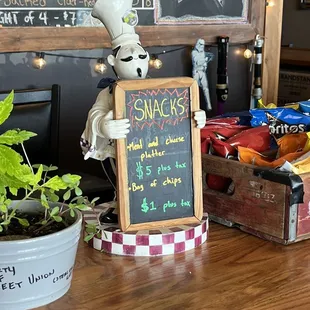 SNACKS
GHT of 4 - $7
SNACKS
• Meat and cheese
platter
• $5 plus tax
• Bag of chips
• $1 plus tax
Doritos
EET UNION